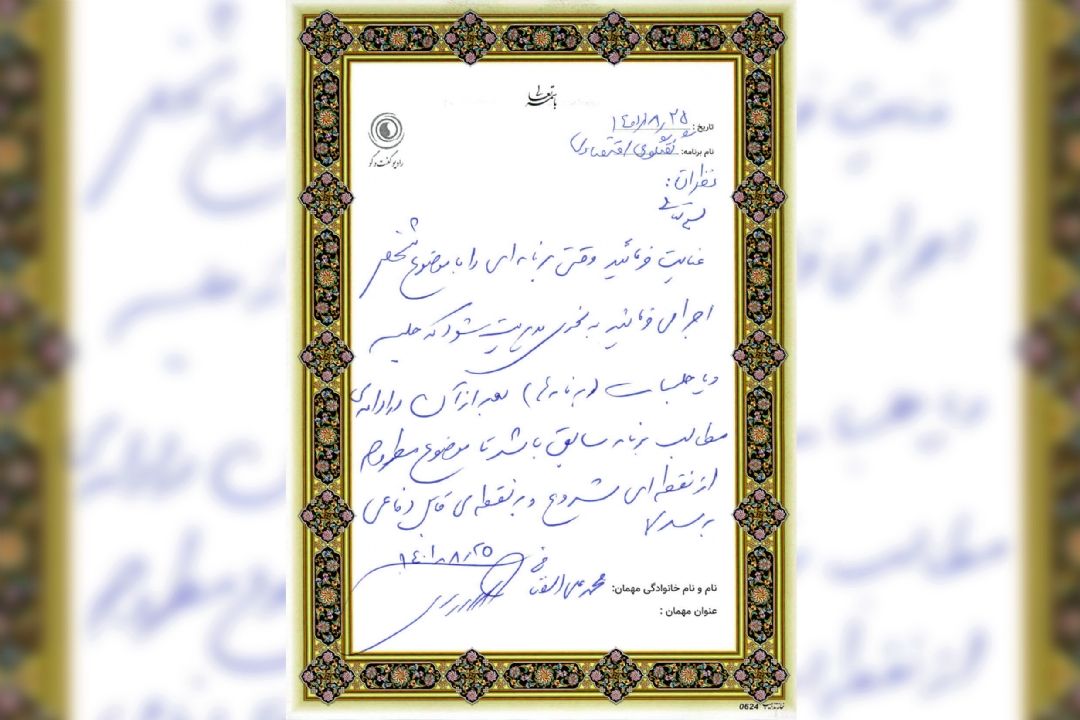 باسمه تعالی
رادیو گفت و گو
تاریخ: ۱۴۰۱/۸/۲۵
نام برنامه: گفتگوی اقتصادی
نظرات:
بسمه تعالی
عنایت فرمائید وقتی برنامه ای را با موضوع مشخص
اجرا می فرمائید به نحوی مدیریت شود که جلسه
و یا جلسات (برنامه ها) بعد از آن در ادامه ی
مطالب برنامه سابق باشد تا موضوع مطروحه
از نقطه ای شروع و به نقطه ی قابل دفاعی
برسد.
۱۴۰۱/۸/۲۵
نام و نام خانوادگی مهمان: محمد علی
عنوان مهمان :
0624